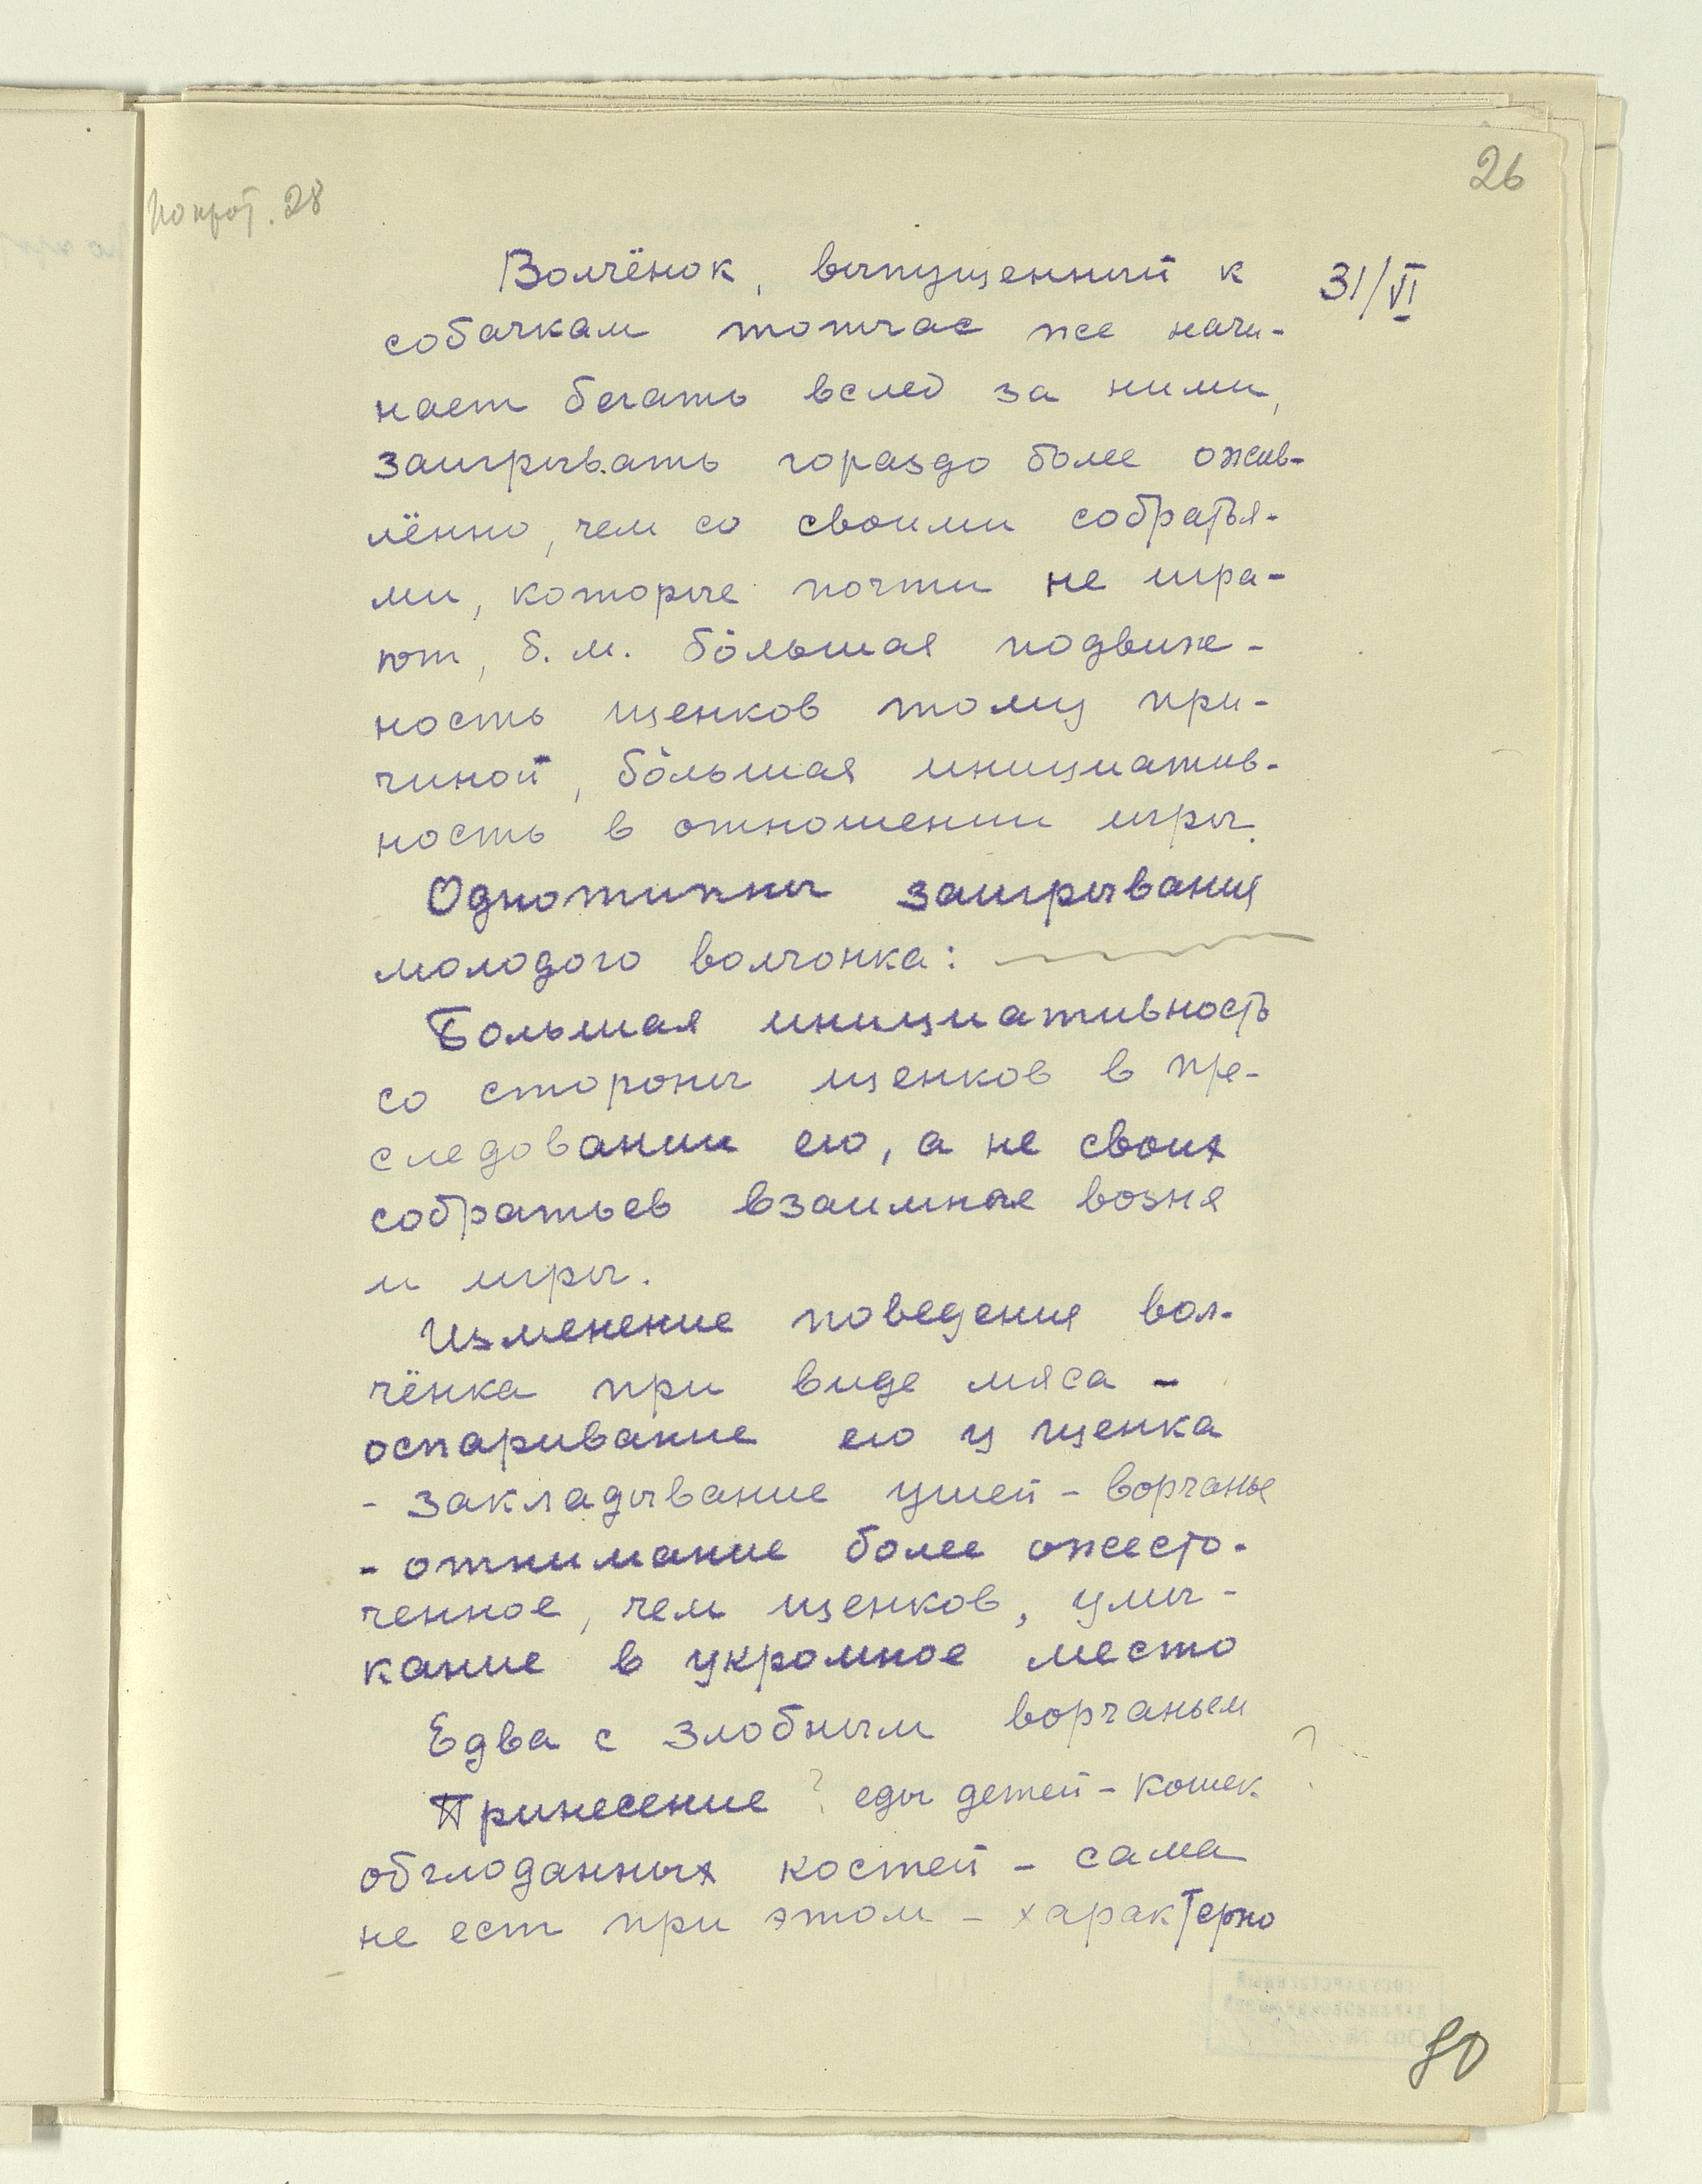 26
Волчёнок, выпущенный к
31/VI
собачкам тотчас же начи-
нает бегать вслед за ними,
заигрывать гораздо более ожив-
лённо, чем со своими собратья-
ми, которые почти не игра-
ют, б.м. бо́льшая подвиж-
ность щенков тому при-
чиной, бо́льшая инициатив-
ность в отношении игры.
Однотипны заигрывания
молодого волчонка:
Большая инициативность
со стороны щенков в пре-
следовании его, а не своих
собратьев взаимная возня
и игры.
Изменение поведения вол-
чёнка при виде мяса –
оспаривание его у щенка
- закладывание ушей – ворчанье
- отнимание более ожесто-
ченное, чем щенков, умы-
кание в укромное место
Едва с злобным ворчаньем
Принесение ? еды детей – кошек
обглоданных костей – сама
не ест при этом – характерно
80